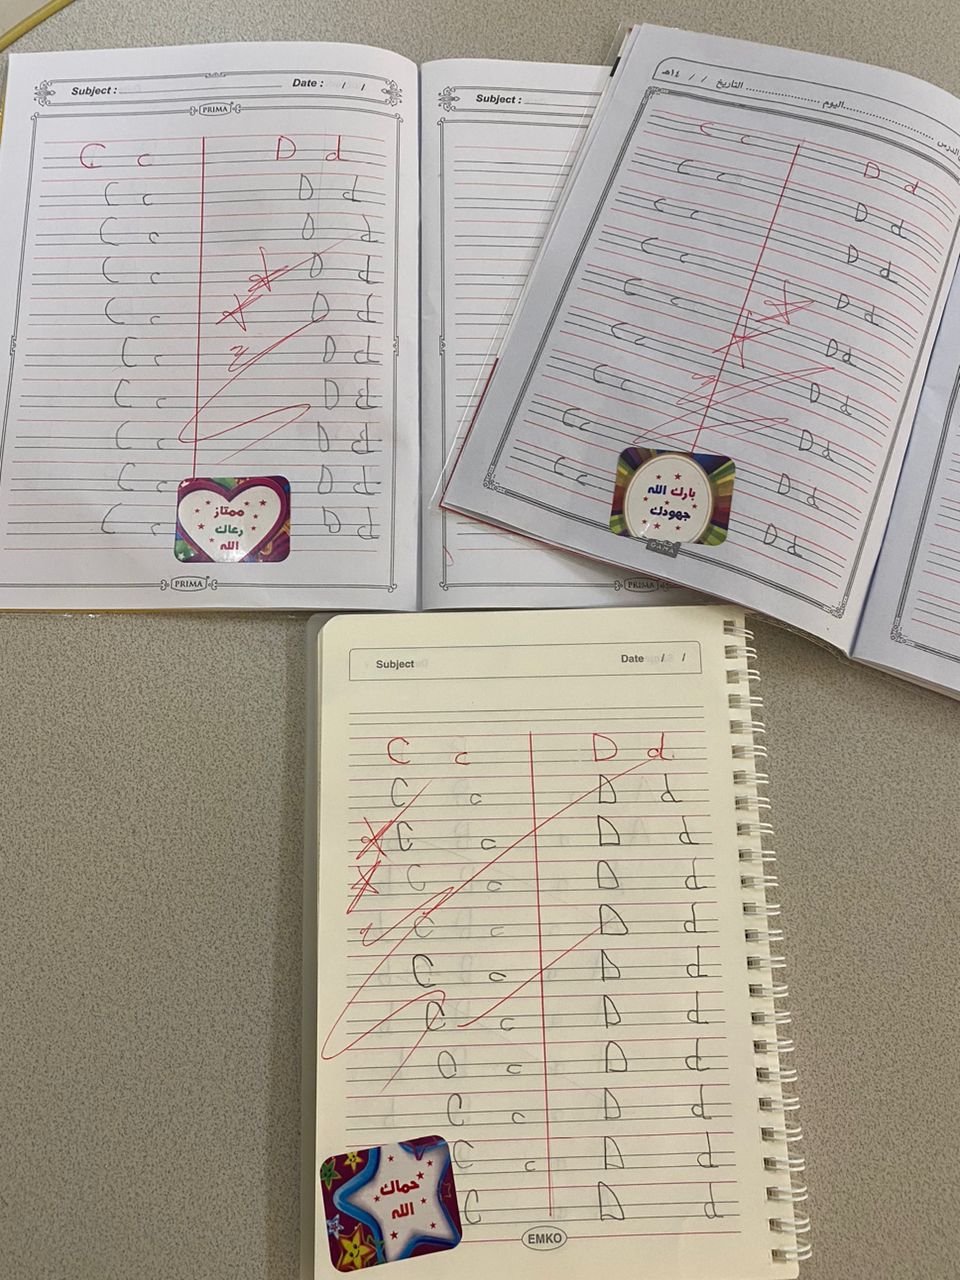 Subject : Date : / /
PRIMA
C c D d
C c D d
C c D d
C c D d
C c D d
C c D d
C c D d
C c D d
C c D d
C c D d
ممتاز
رعاك
الله
PRIMA
Subject :
PRIMA
اليوم التاريخ / / ١٤هـ
C c D d
C c D d
C c D d
C c D d
C c D d
C c D d
C c D d
C c D d
C c D d
بارك الله
جهودك
GAMA
Subject Date / /
C c D d
C c D d
C c D d
C c D d
C c D d
C c D d
C c D d
O c D d
C c D d
C c D d
C D d
حماك
الله
EMKO